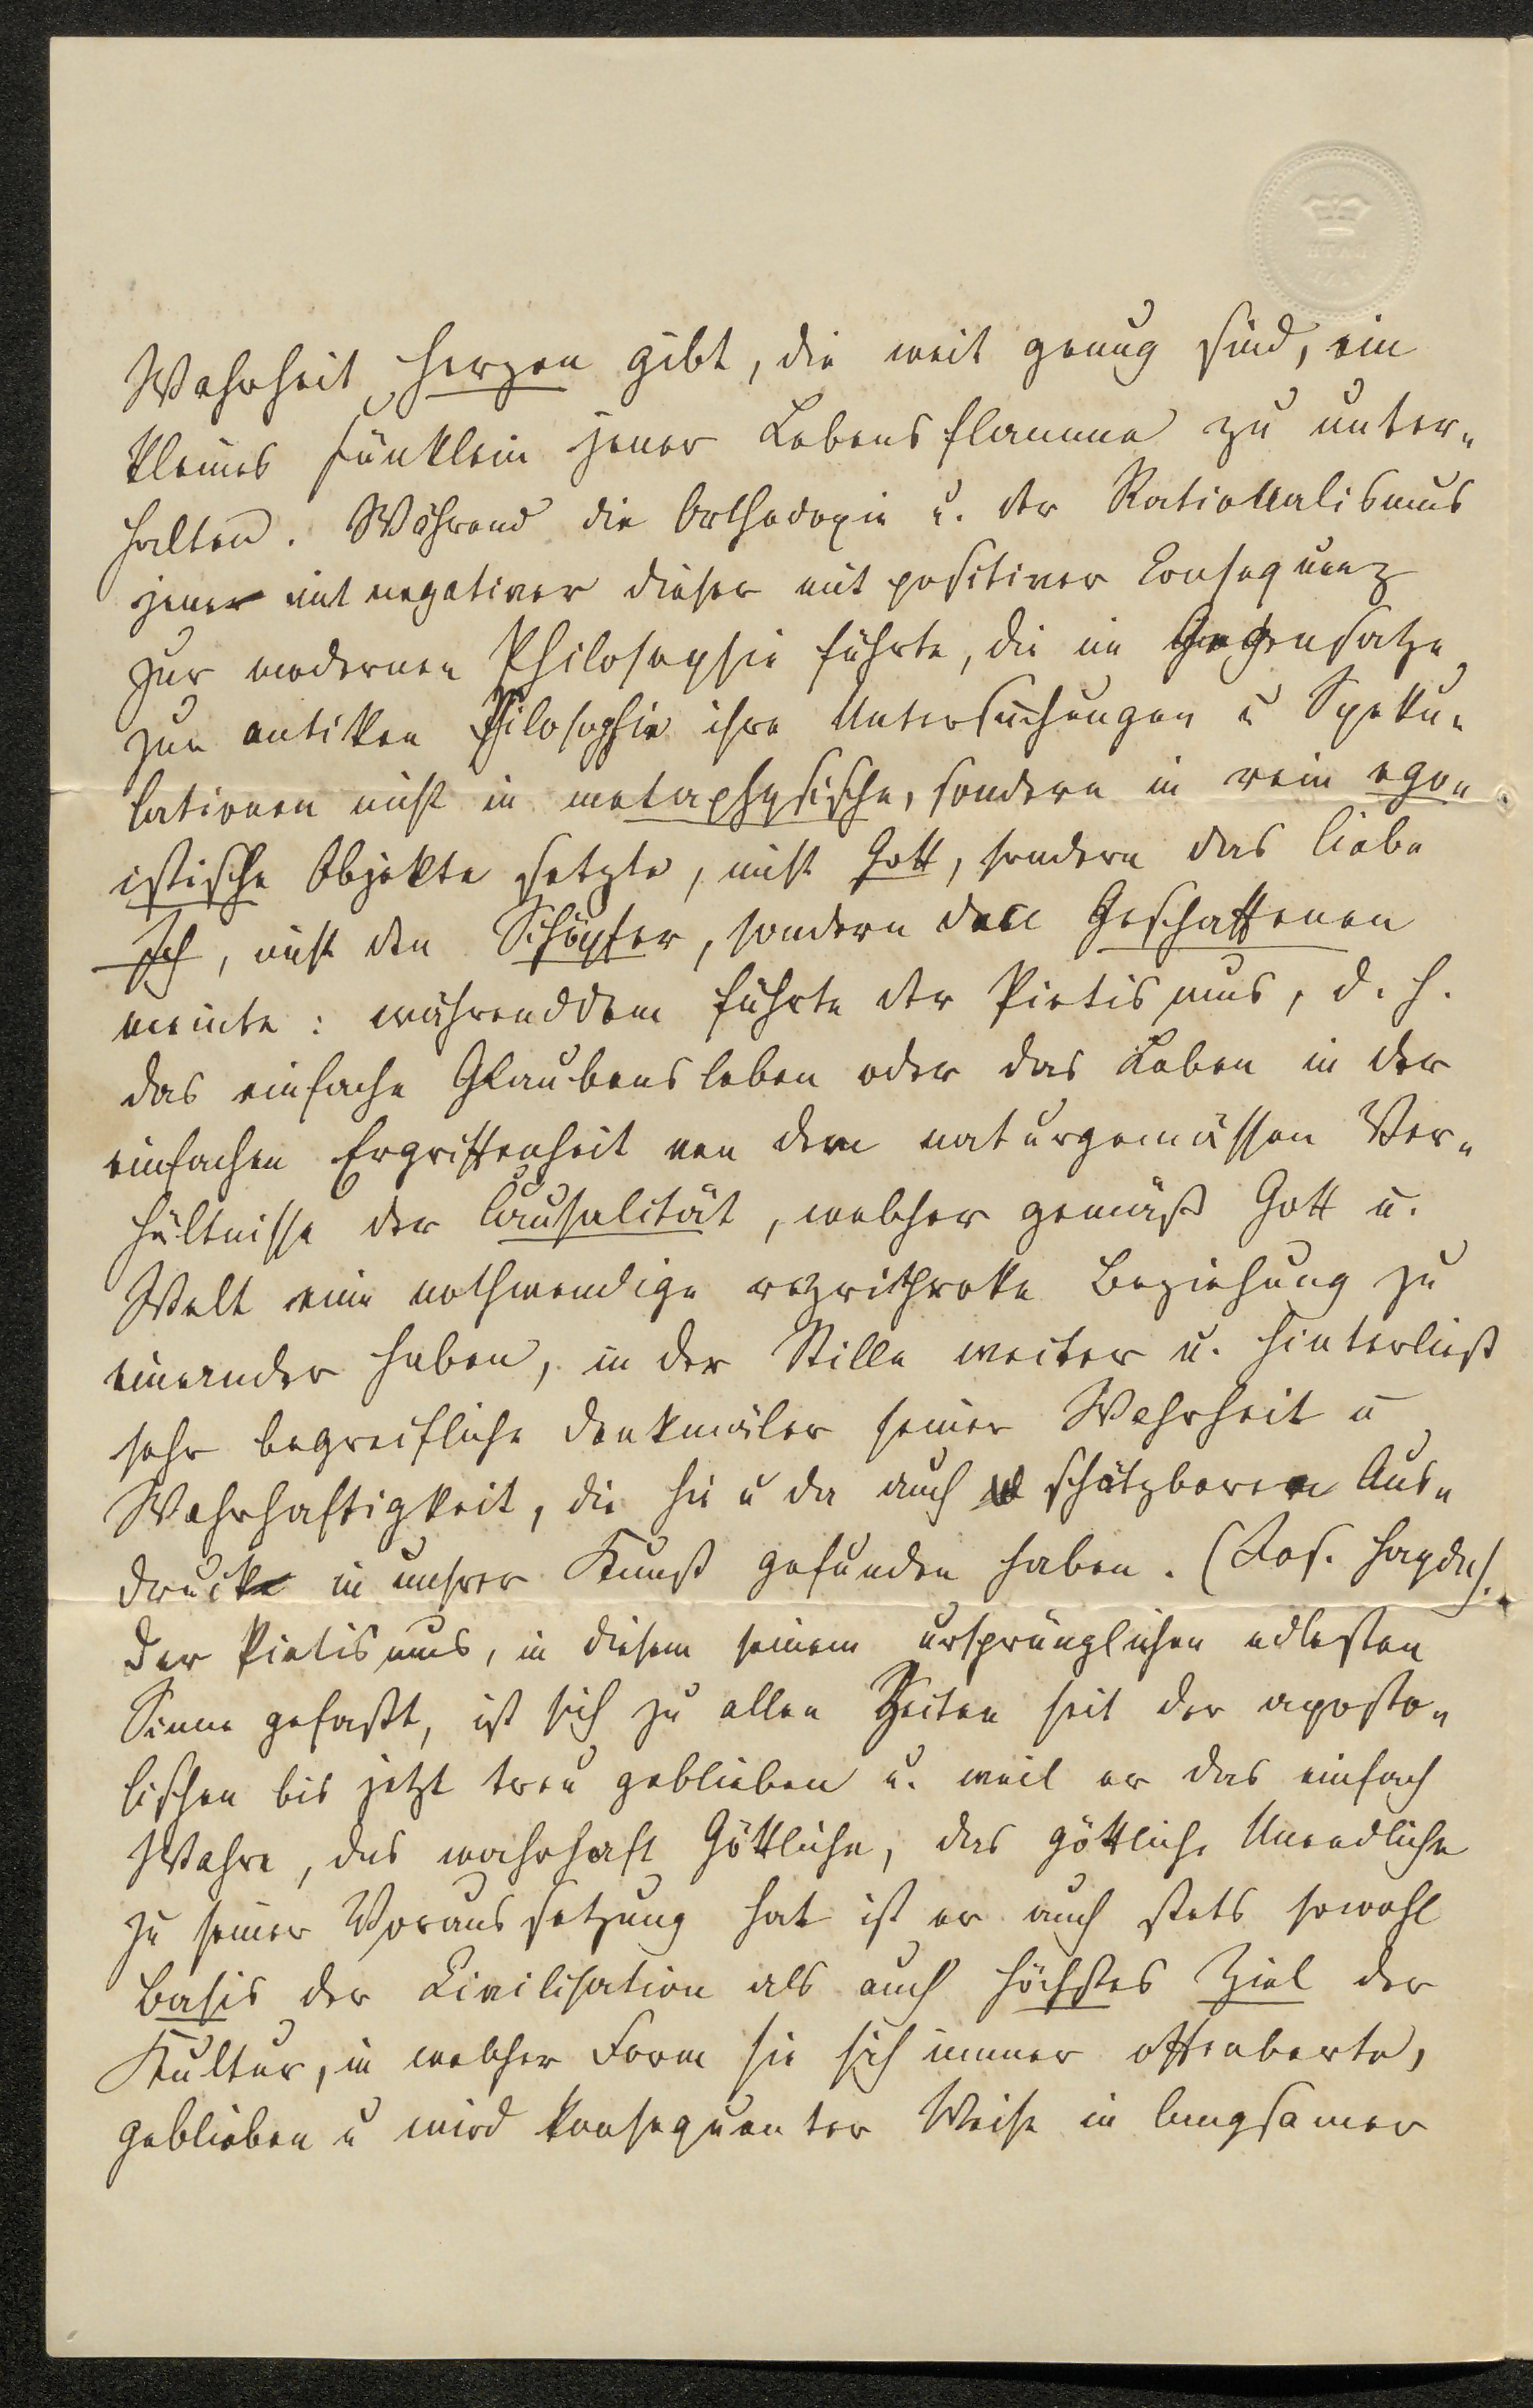 Wahrheit Herzen gibt, die weit genug sind, ein
kleines Fünklein jener Lebensflamme zu unter-
halten. Während die Orthodoxie u. der Rationalismus
jene mit negativer dieser mit positiver Consequenz
zur modernen Philosophie führte, die im Gegensatze
zur antiken Philosophie ihre Untersuchungen u Speku-
lationen nicht in metaphysische, sondern in rein ego-
istische Objekte setzte, nicht Gott, sondern das liebe
Ich, nicht den Schöpfer, sondern den Geschaffenen
meinte: währenddem führte der Pietismus, d. h.
das einfache Glaubensleben oder das Leben in der
einfachen Ergriffenheit von dem naturgemässen Ver-
hältnisse der Causalität, welcher gemäß Gott u.
Welt eine nothwendige reziproke Beziehung zu
einander haben, in der Stille weiter u. hinterließ
sehr begreifliche Denkmäler seiner Wahrheit u
Wahrhaftigkeit, die hie u da auch schätzbaren Aus-
druck in unsrer Kunst gefunden haben. (Jos. Haydn).
Der Pietismus, in diesem seinem ursprünglichen edlesten
Sinne gefaßt, ist sich zu allen Zeiten seit der aposto-
lischen bis jetzt treu geblieben u. weil er das einfach
Wahre, das wahrhaft Göttliche, das göttlich Unendliche
zu seiner Voraussetzung hat ist er auch stets sowohl
Basis der Civilisation als auch höchstes Ziel der
Kultur, in welcher Form sie sich immer offenbarte,
geblieben u wird konsequenter Weise in langsamer